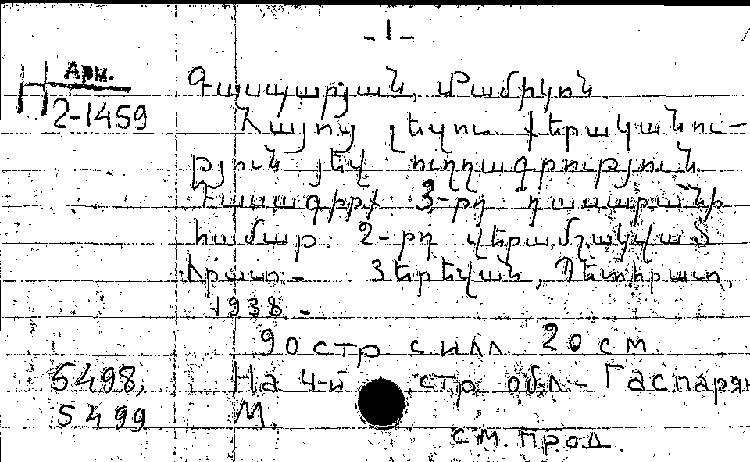 - 1 -
Арм.
Н 2-1459
Գասպարյան, Մամիկոն.
Հայոց լեզու. քերականու-
թյուն յեվ ուղղագրություն
Դասագիրք 3-րդ դասարանի
համար. 2-րդ վերամշակված
հրատ.- Յերեվան, Պետհրատ,
1938.-
90 стр с илл 20 см.
5498, На 4-й стр обл.- Гаспарян
5499 М.
см. прод.